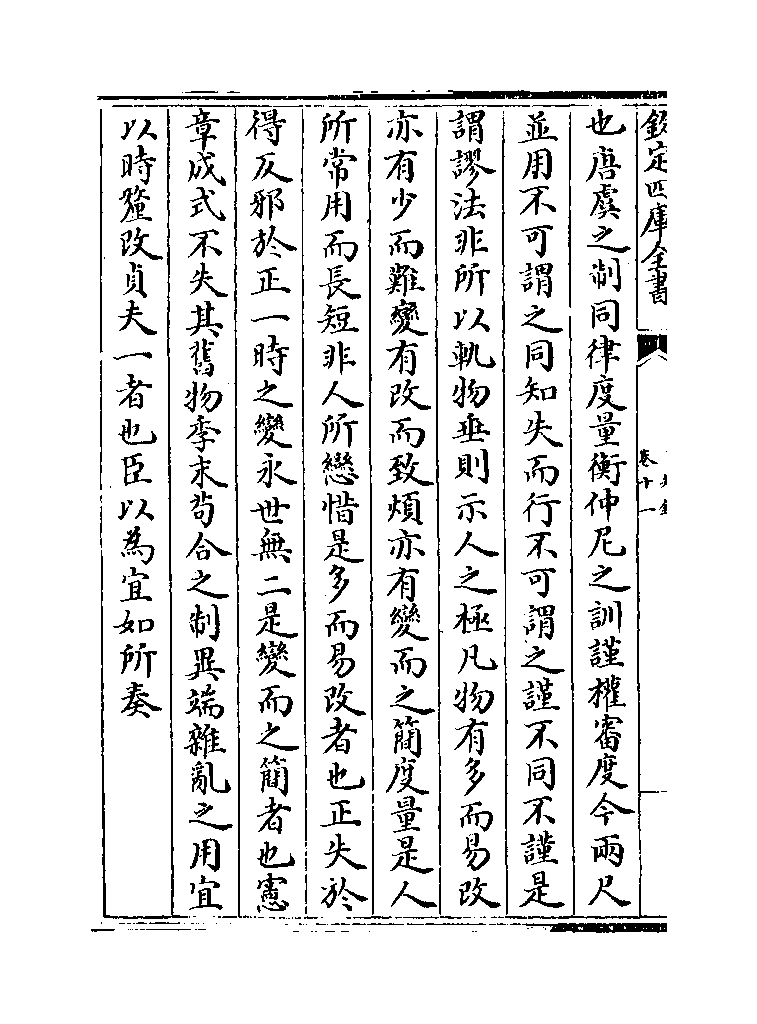 欽定四庫全書
卷十一
也唐虞之制同律度量衡仲尼之訓謹權審度今兩尺
並用不可謂之同知失而行不可謂之謹不同不謹是
謂謬法非所以軌物垂則示人之極凡物有多而易改
亦有少而難變有改而致煩亦有變而之簡度量是人
所常用而長短非人所戀惜是多而易改者也正失於
得反邪於正一時之變永世無二是變而之簡者也憲
章成式不失其舊物季末茍合之制異端雜亂之用宜
以時釐改貞夫一者也臣以為宜如所奏